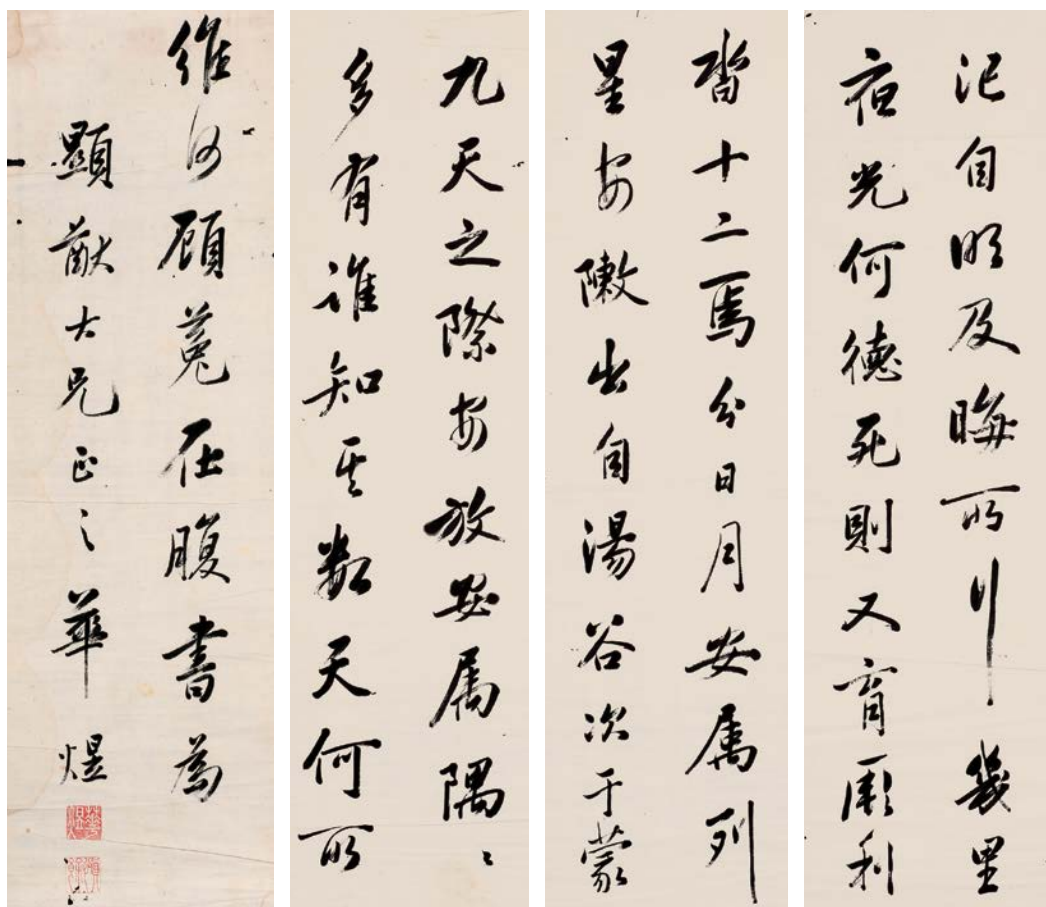 汜自明及晦所行幾里
夜光何德死則又育厥利
沓十二焉分日月安屬列
星安敶出自湯谷次于蒙
九天之際安放安屬隅〻
多有誰知其數天何所
維何顧菟在腹書為
顯猷大兄正之華煜
華煜